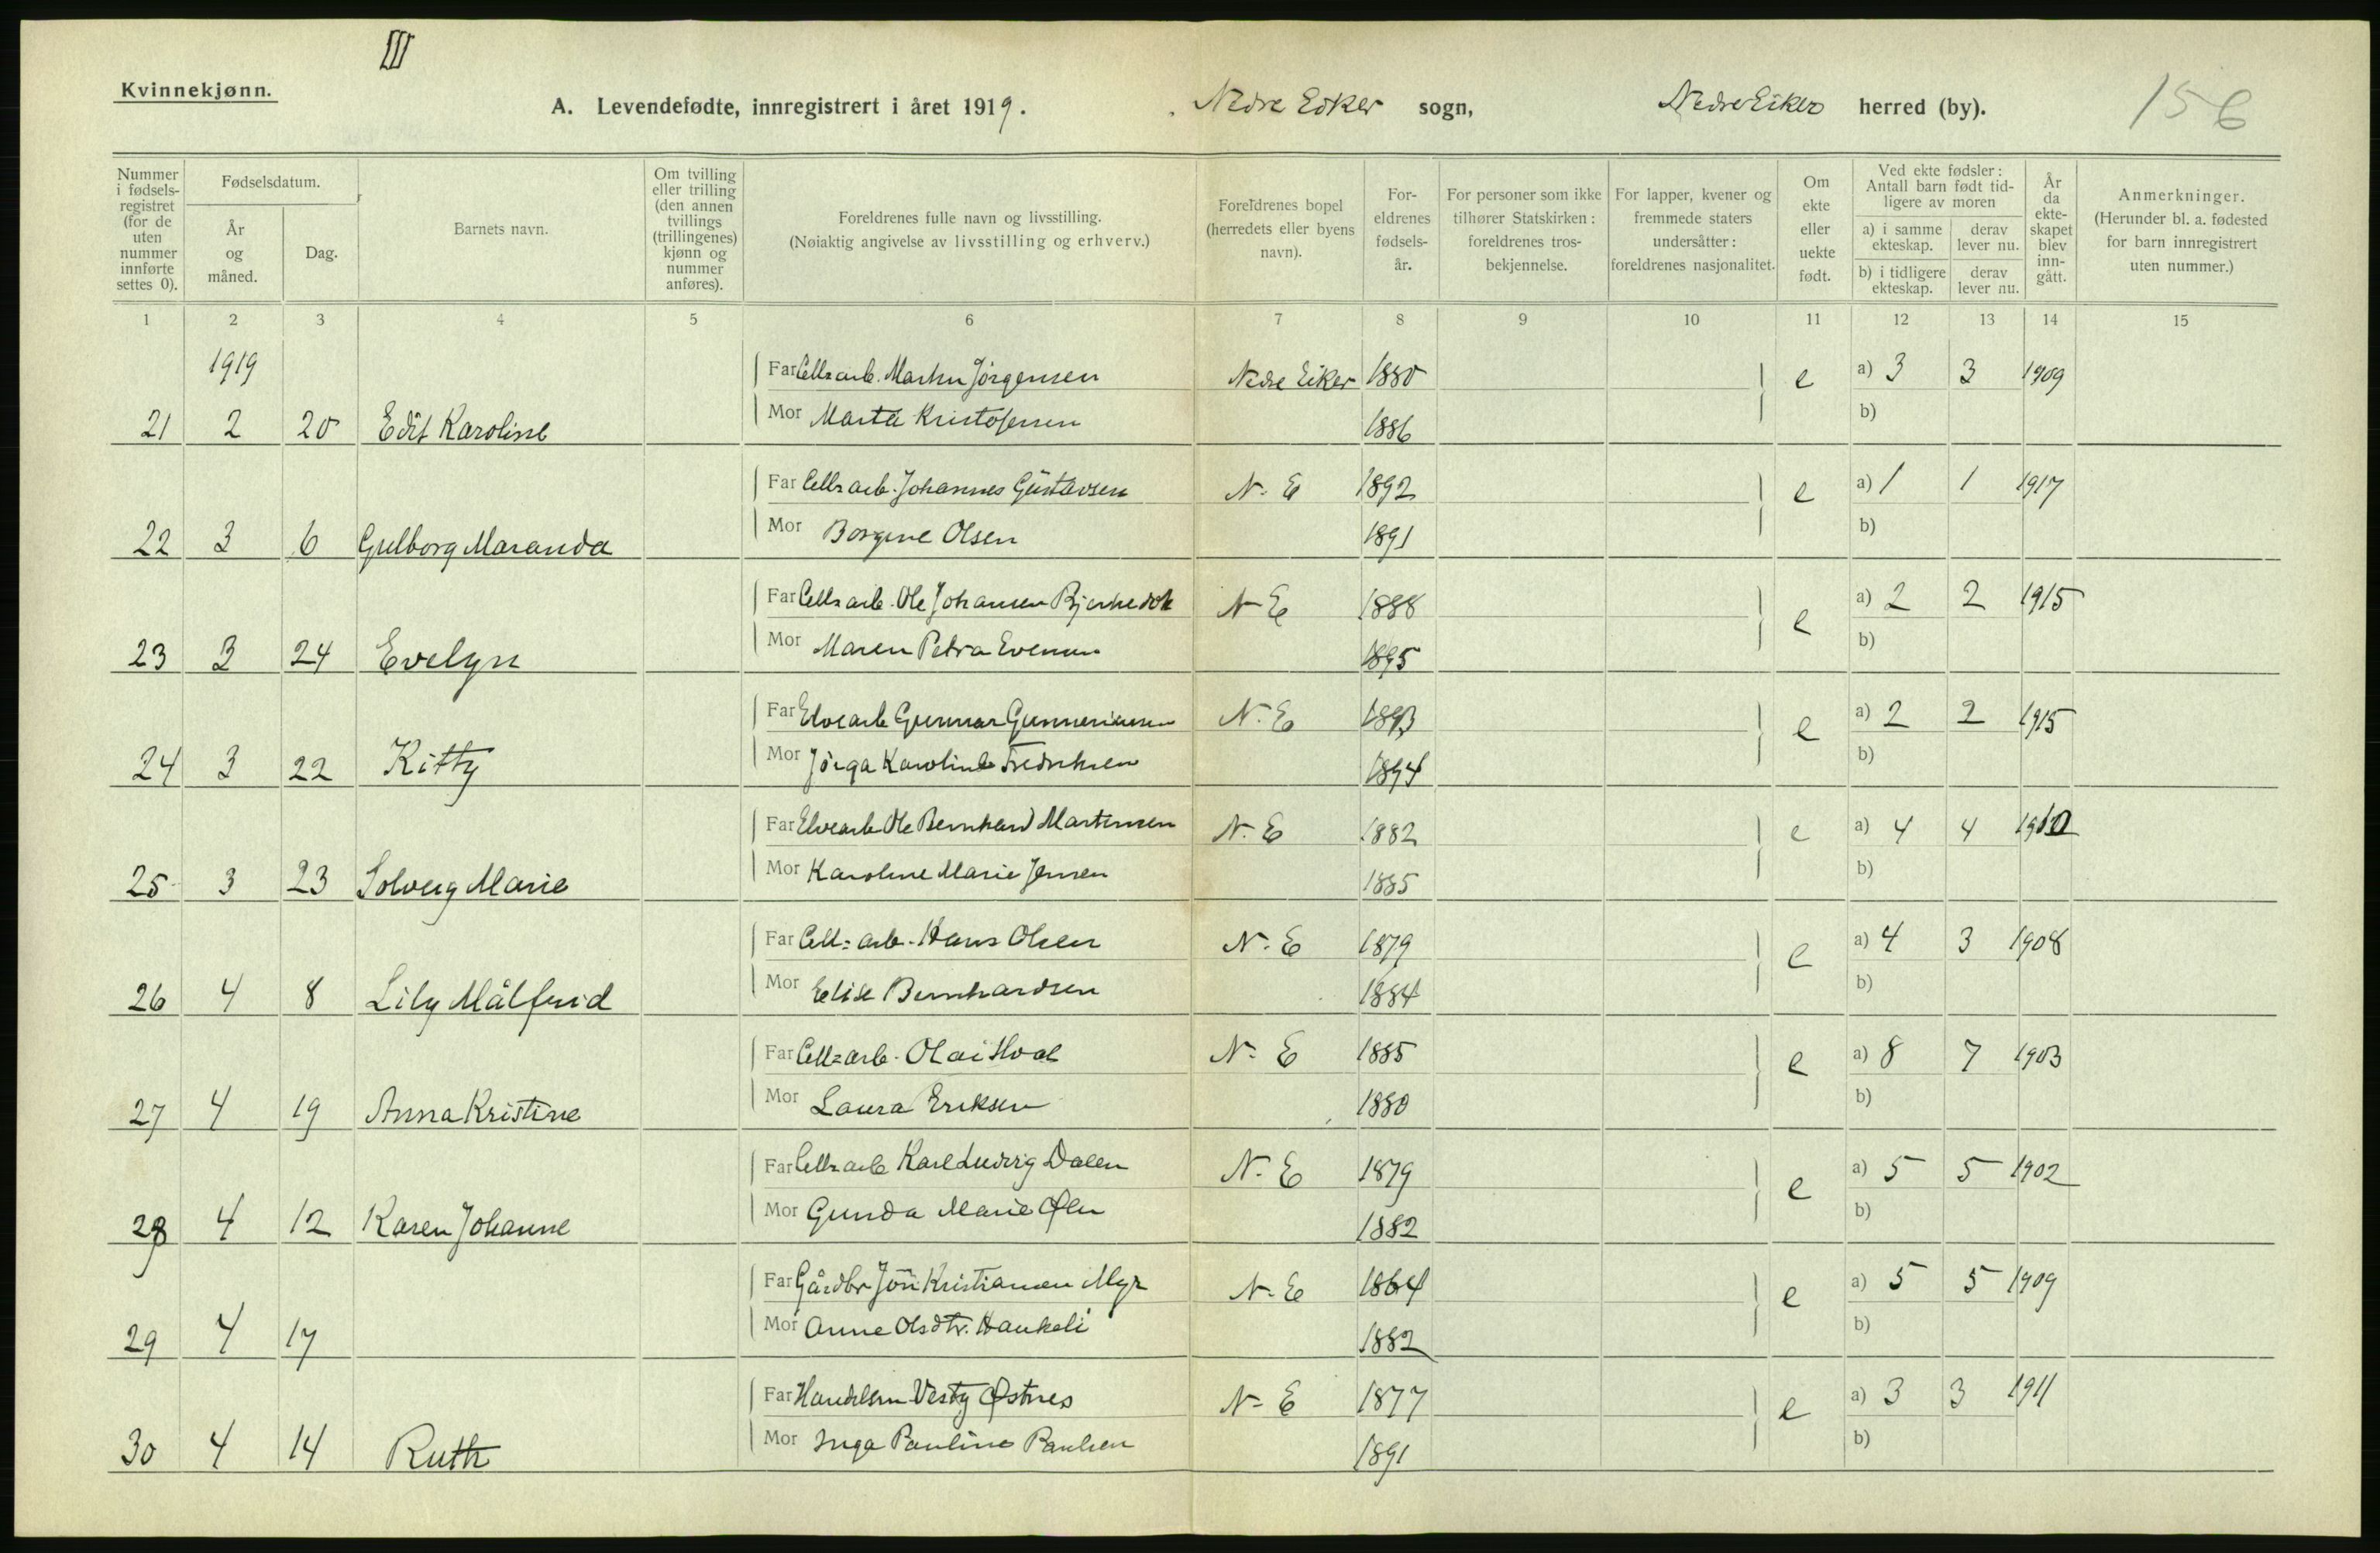 III
Kvinnekjønn.
A. Levendefødte, innregistrert i året 1919. Nedre Eiker sogn, Nedre Eiker herred (by). 156
Nummer i fødselsregistret (for de uten nummer innførte settes 0).
Fødselsdatum.
År og måned.
Dag.
Barnets navn.
Om tvilling eller trilling (den annen tvillings (trillingenes) kjønn og nummer anføres).
Foreldrenes fulle navn og livsstilling.
(Nøiaktig angivelse av livsstilling og erhverv.)
Foreldrenes bopel (herredets eller byens navn).
Foreldrenes fødselsår.
For personer som ikke tilhører Statskirken: foreldrenes trosbekjennelse.
For lapper, kvener og fremmede staters undersåtter: foreldrenes nasjonalitet.
Om ekte eller uekte født.
Ved ekte fødsler: Antall barn født tidligere av moren
a) i samme ekteskap. derav lever nu.
b) i tidligere ekteskap. derav lever nu.
År da ekteskapet blev inngått.
Anmerkninger.
(Herunder bl. a. fødested for barn innregistrert uten nummer.)
1 2 3 4 5 6 7 8 9 10 11 12 13 14 15
1919
Far Cells arb. Martin Jörgensen Nedre Eiker 1880 e a) 3 3 1909
21 2 20 Edit Karoline Mor Marta Kristofersen 1886 b)
Far Cells arb. Johannes Gustavsen N. E 1892 e a) 1 1 1917
22 3 6 Gulborg Maranda Mor Borgine Olsen 1891 b)
Far Cells arb. Ole Johansen N E 1888 e a) 2 2 1915
23 3 24 Evelyn Mor Maren Petra Evensen 1895 b)
Far Elvearb Gunnar Gunneriussen N. E 1893 e a) 2 2 1915
24 3 22 Kitty Mor Jörga Karoline Fredriksen 1894 b)
Far Elvearb Ole Bernhard Martinsen N. E 1882 e a) 4 4 1910
25 3 23 Solveig Marie Mor Karoline Marie Jensen 1885 b)
Far Cell= arb. Hans Olsen N. E 1879 e a) 4 3 1908
26 4 8 Lily Målfrid Mor Elise Bernhardsen 1884 b)
Far Cell= arb. Olai Hval N. E 1885 e a) 8 7 1903
27 4 19 Anna Kristine Mor Laura Eriksen 1880 b)
Far Cells arb Karl Ludvig Dalen N. E 1879 e a) 5 5 1902
28 4 12 Karen Johanne Mor Gunda Marie 1882 b)
Far Gårdbr Jön Kristiansen Myr N. E 1864 e a) 5 5 1909
29 4 17 Mor Anne Olsdtr. Haukeli 1882 b)
Far Handelsm Vestg Østnes N- E 1877 e a) 3 3 1911
30 4 14 Ruth Mor Inga Pauline Paulsen 1891 b)